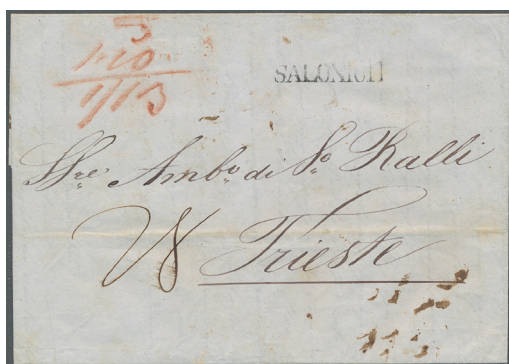 3
1.10
1/13
SALONICH
Sre. Ambo. di So. Ralli
28
Trieste